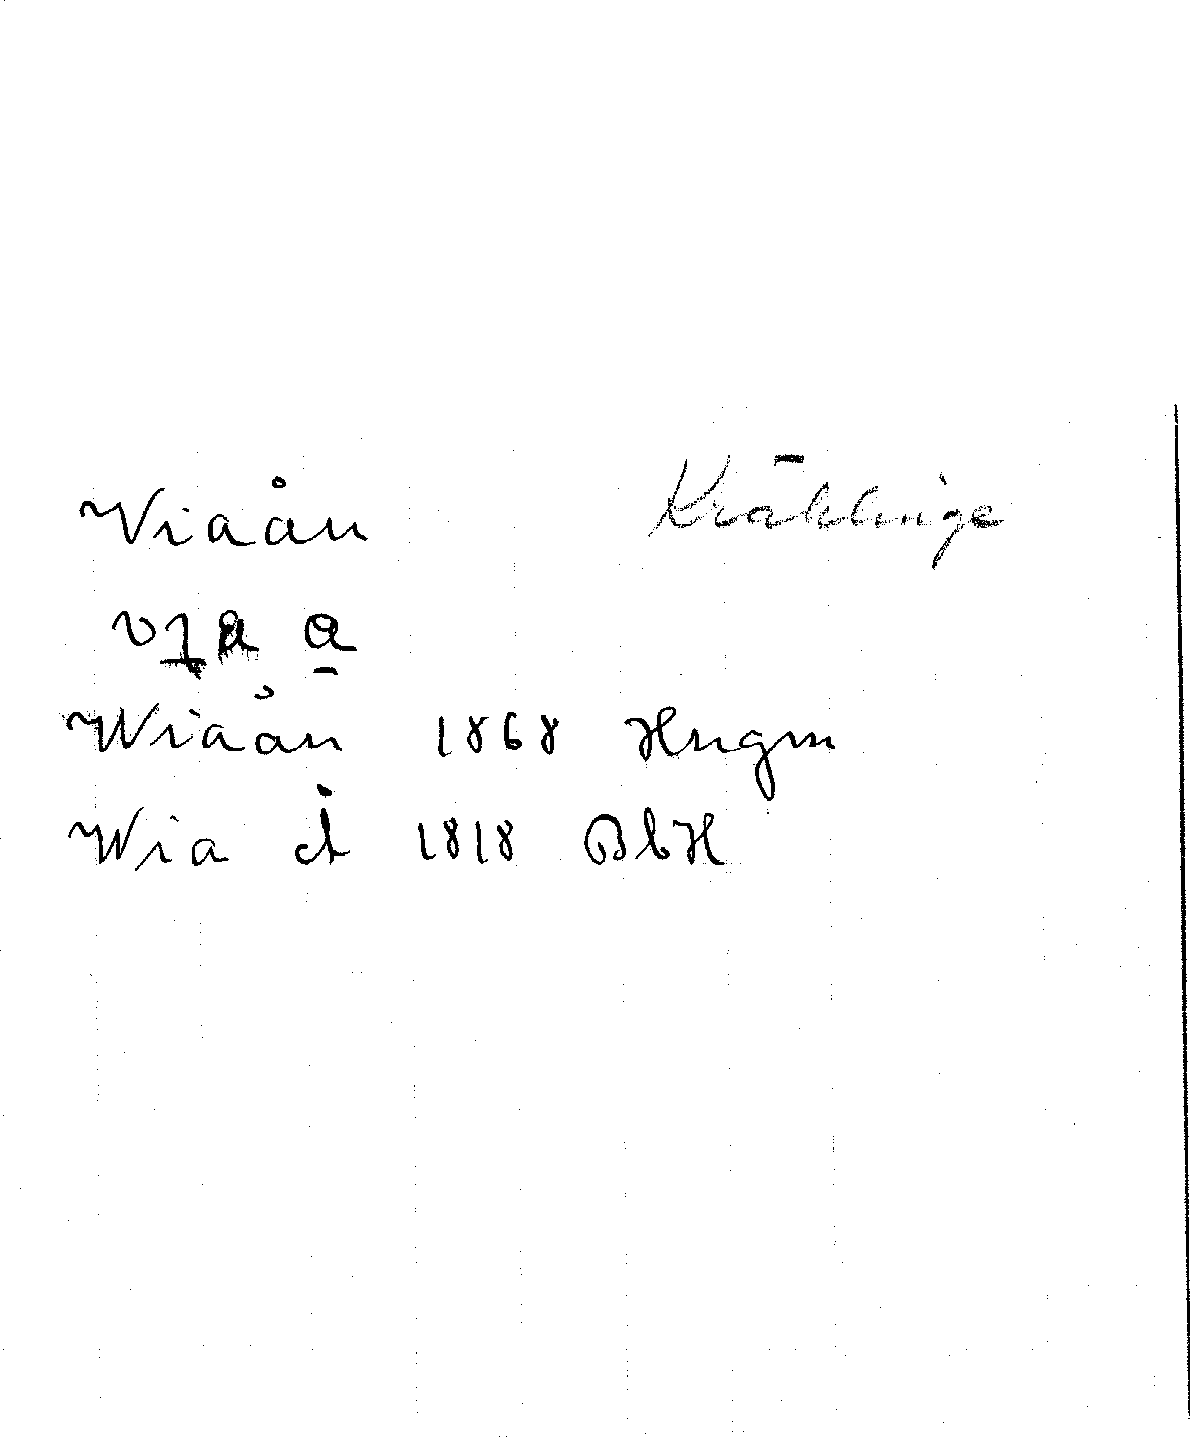 Viaån Kräklinge
Wiaån 1868 Hngm
Wia Å 1818 BbH